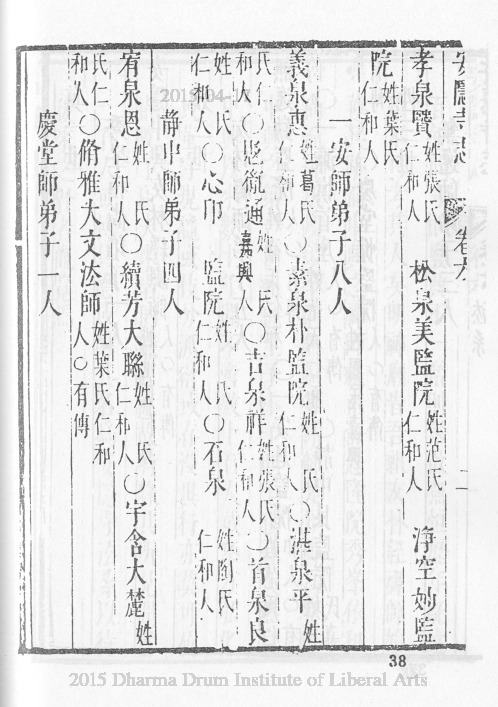 安隱寺志 卷六 二
孝泉賢姓張氏仁和人 松泉美監院姓范氏仁和人 淨空妙監
院姓葉氏仁和人
一安師弟子八人
義泉惠姓葛氏仁和人○素泉朴監院姓 氏仁和人○湛泉平姓
氏仁和人○思衒通姓 氏嘉興人○吉泉祥姓張氏仁和人○首泉良
姓 氏仁和人○心印 監院姓 氏仁和人○石泉 姓劉氏仁和人
靜中師弟子四人
宥泉恩姓 氏仁和人○續芳大聯姓 氏仁和人○宇含大麓姓
氏仁和人○脩雅大文法師姓葉氏仁和人○有傳
慶堂師弟子一人
38
2015-04-17
2015 Dharma Drum Institute of Liberal Arts